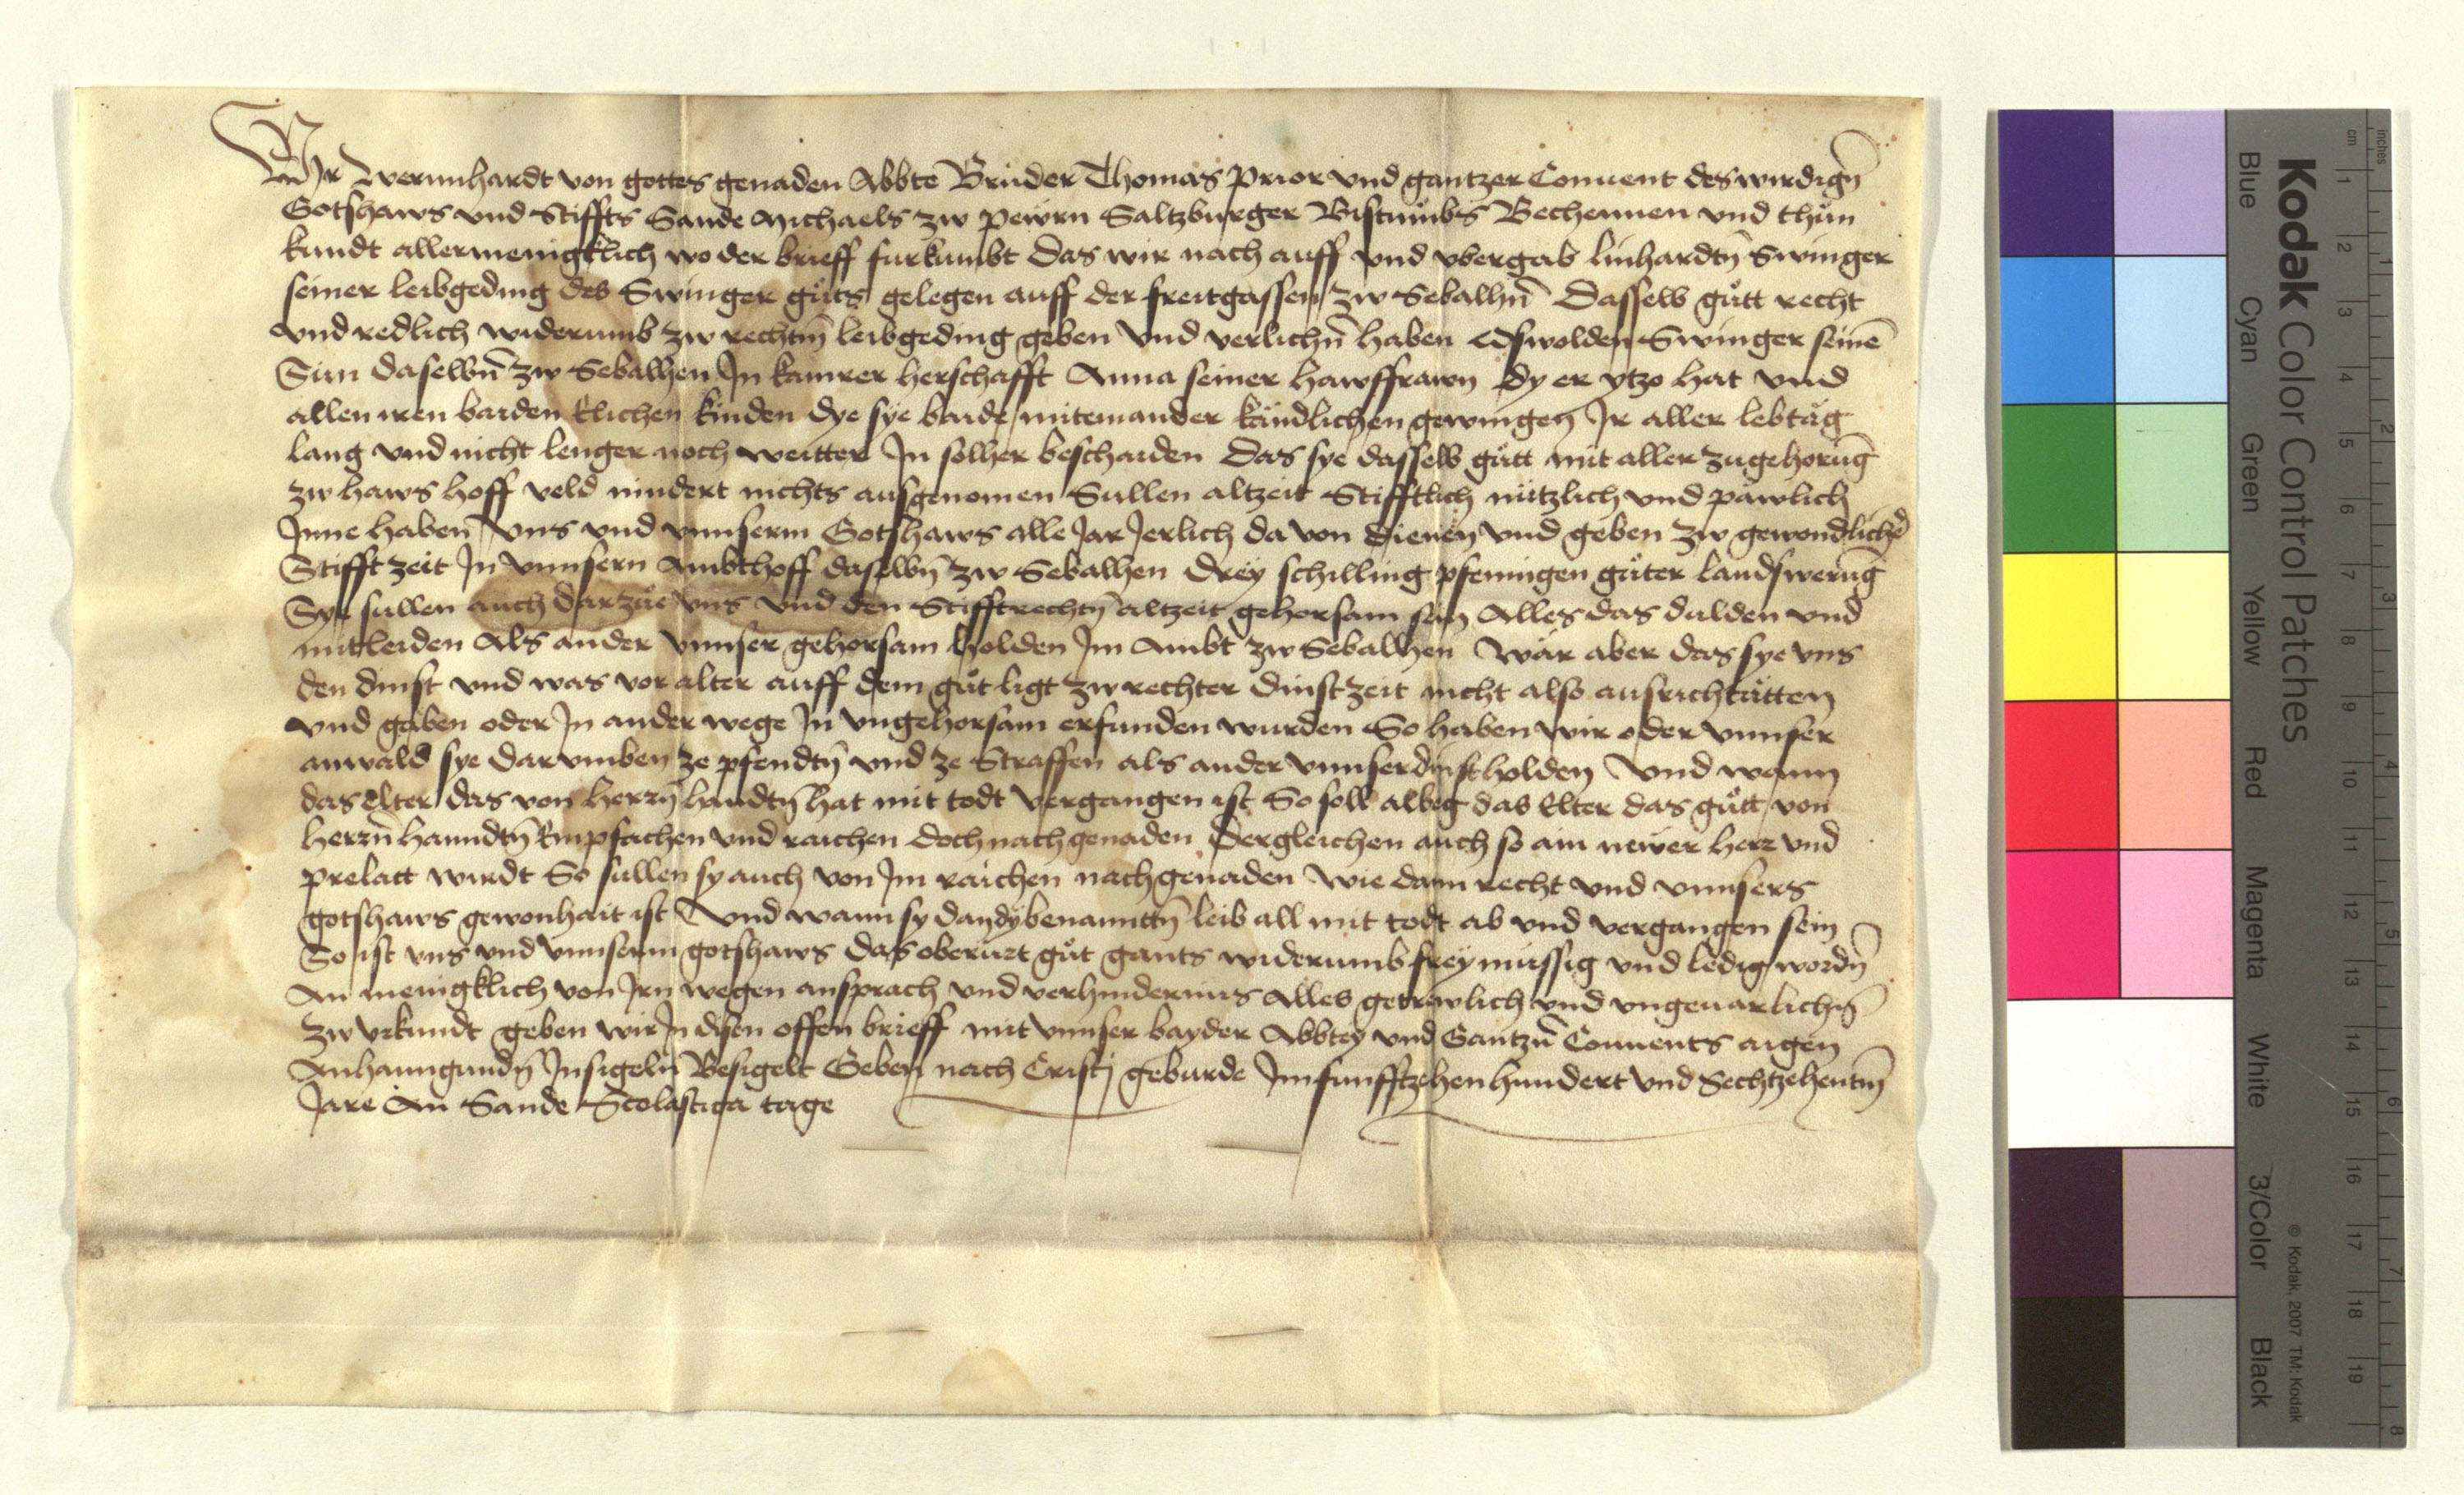 Wir Wernnhardt von gottes genaden Abbte Brüder Thomas prior vnd gantzer Conuent des wirdign̄
Gotshaws vnd Stiffts Sande Michaels zw pewrn Saltzburger Bistumbs Bechennen vnd thůn
kundt allermenigklich wo der brieff furkumbt Das wir nach auff vnd vbergab linhardtn̄ Swinger
seiner leibgeding des Swinger gůts gelegen auff der freitgassen zw Sebalhn̄ Dasselb gůtt recht
vnd redlich widerumb zw rechtm̄ leibgeding geben vnd verlichn̄ haben Oswolden Swinger seinē
Sun daselbn̄ zw Sebalhen In kamrer herschafft Anna seiner hawsfrawn dy er ytzo hat vnd
allen iren baiden Elichen kinden dye sye baide miteinander kündlichen gewingen Ir aller lebtäg
lang vnd nicht lenger noch weitter In solher beschaiden Das sye dasselb gůtt mit aller zugehorūg
zw haws hoff veld nindert nichts ausgenomen Sullen altzeit Stifftlich nützlich vnd päwlich
Inne haben vns vnd vnnserm Gotshaws alle Jar Jerlich da von dienen vnd geben zw gewondlicher
Stifft zeit In vnnsern Ambthoff daselbn̄ zw Sebalhen drey schilling pfenningen gůter landswerūg
Sye sullen auch darzůe vns vnd den Stifftrechtn̄ altzeit gehorsam sein Alles das dulden vnd
mitleiden Als ander vnnser gehorsam holden Im Ambt zw Sebalhen Wär aber das sye vns
den dinst vnd was vor alter auff dem gůt ligt zw rechter dinstzeit nicht also ausrichtätten
vnd gäben oder In ander wege In vngehorsam erfunden wurden So haben wir oder vnnser
anwald sye darvmben ze pfendtn̄ vnd ze Straffen als ander vnnser dinstholden Vnd wann
das Elter das von herrn̄ handtn̄ hat mit todt vergangen ist So soll albeg das Elter das gůtt von
herrn̄ hanndtn̄ Empfachen vnd raichen doch nach genaden Dergleichen auch so ain newer herr vnd
prelatt wirdt So sullen sy auch von Im raichen nach genaden wie dann recht vnd vnnsers
gotshaws gewonhait ist Vnd wann sy dan dy benanntn̄ leib all mit todt ab vnd vergangen sein
So ist vns vnd vnnserm gotshaws das oberürt gůt gants widerumb frey müssig vnd ledig wordn̄
An menigklich von Irn wegen ansprach vnd verhindernus Alles getrewlich vnd vngeuarlichn̄
zw vrkundt geben wir In disen offen brieff mit vnnser bayder Abbtey vnd Gantzn̄ Conuents aigen
Anhanngundn̄ Insigeln̄ Besigelt Geben nach Cristj geburde Im funfftzehenhundert vnd Sechtzehentm̄
Jare An Sande Scolastiga tage
Kodak Color Control Patches
Blue Cyan Green Yellow Red Magenta White 3/Color Black
© Kodak, 2007 TM: Kodak
cm 1 2 3 4 5 6 7 8 9 10 11 12 13 14 15 16 17 18 19
inches 1 2 3 4 5 6 7 8